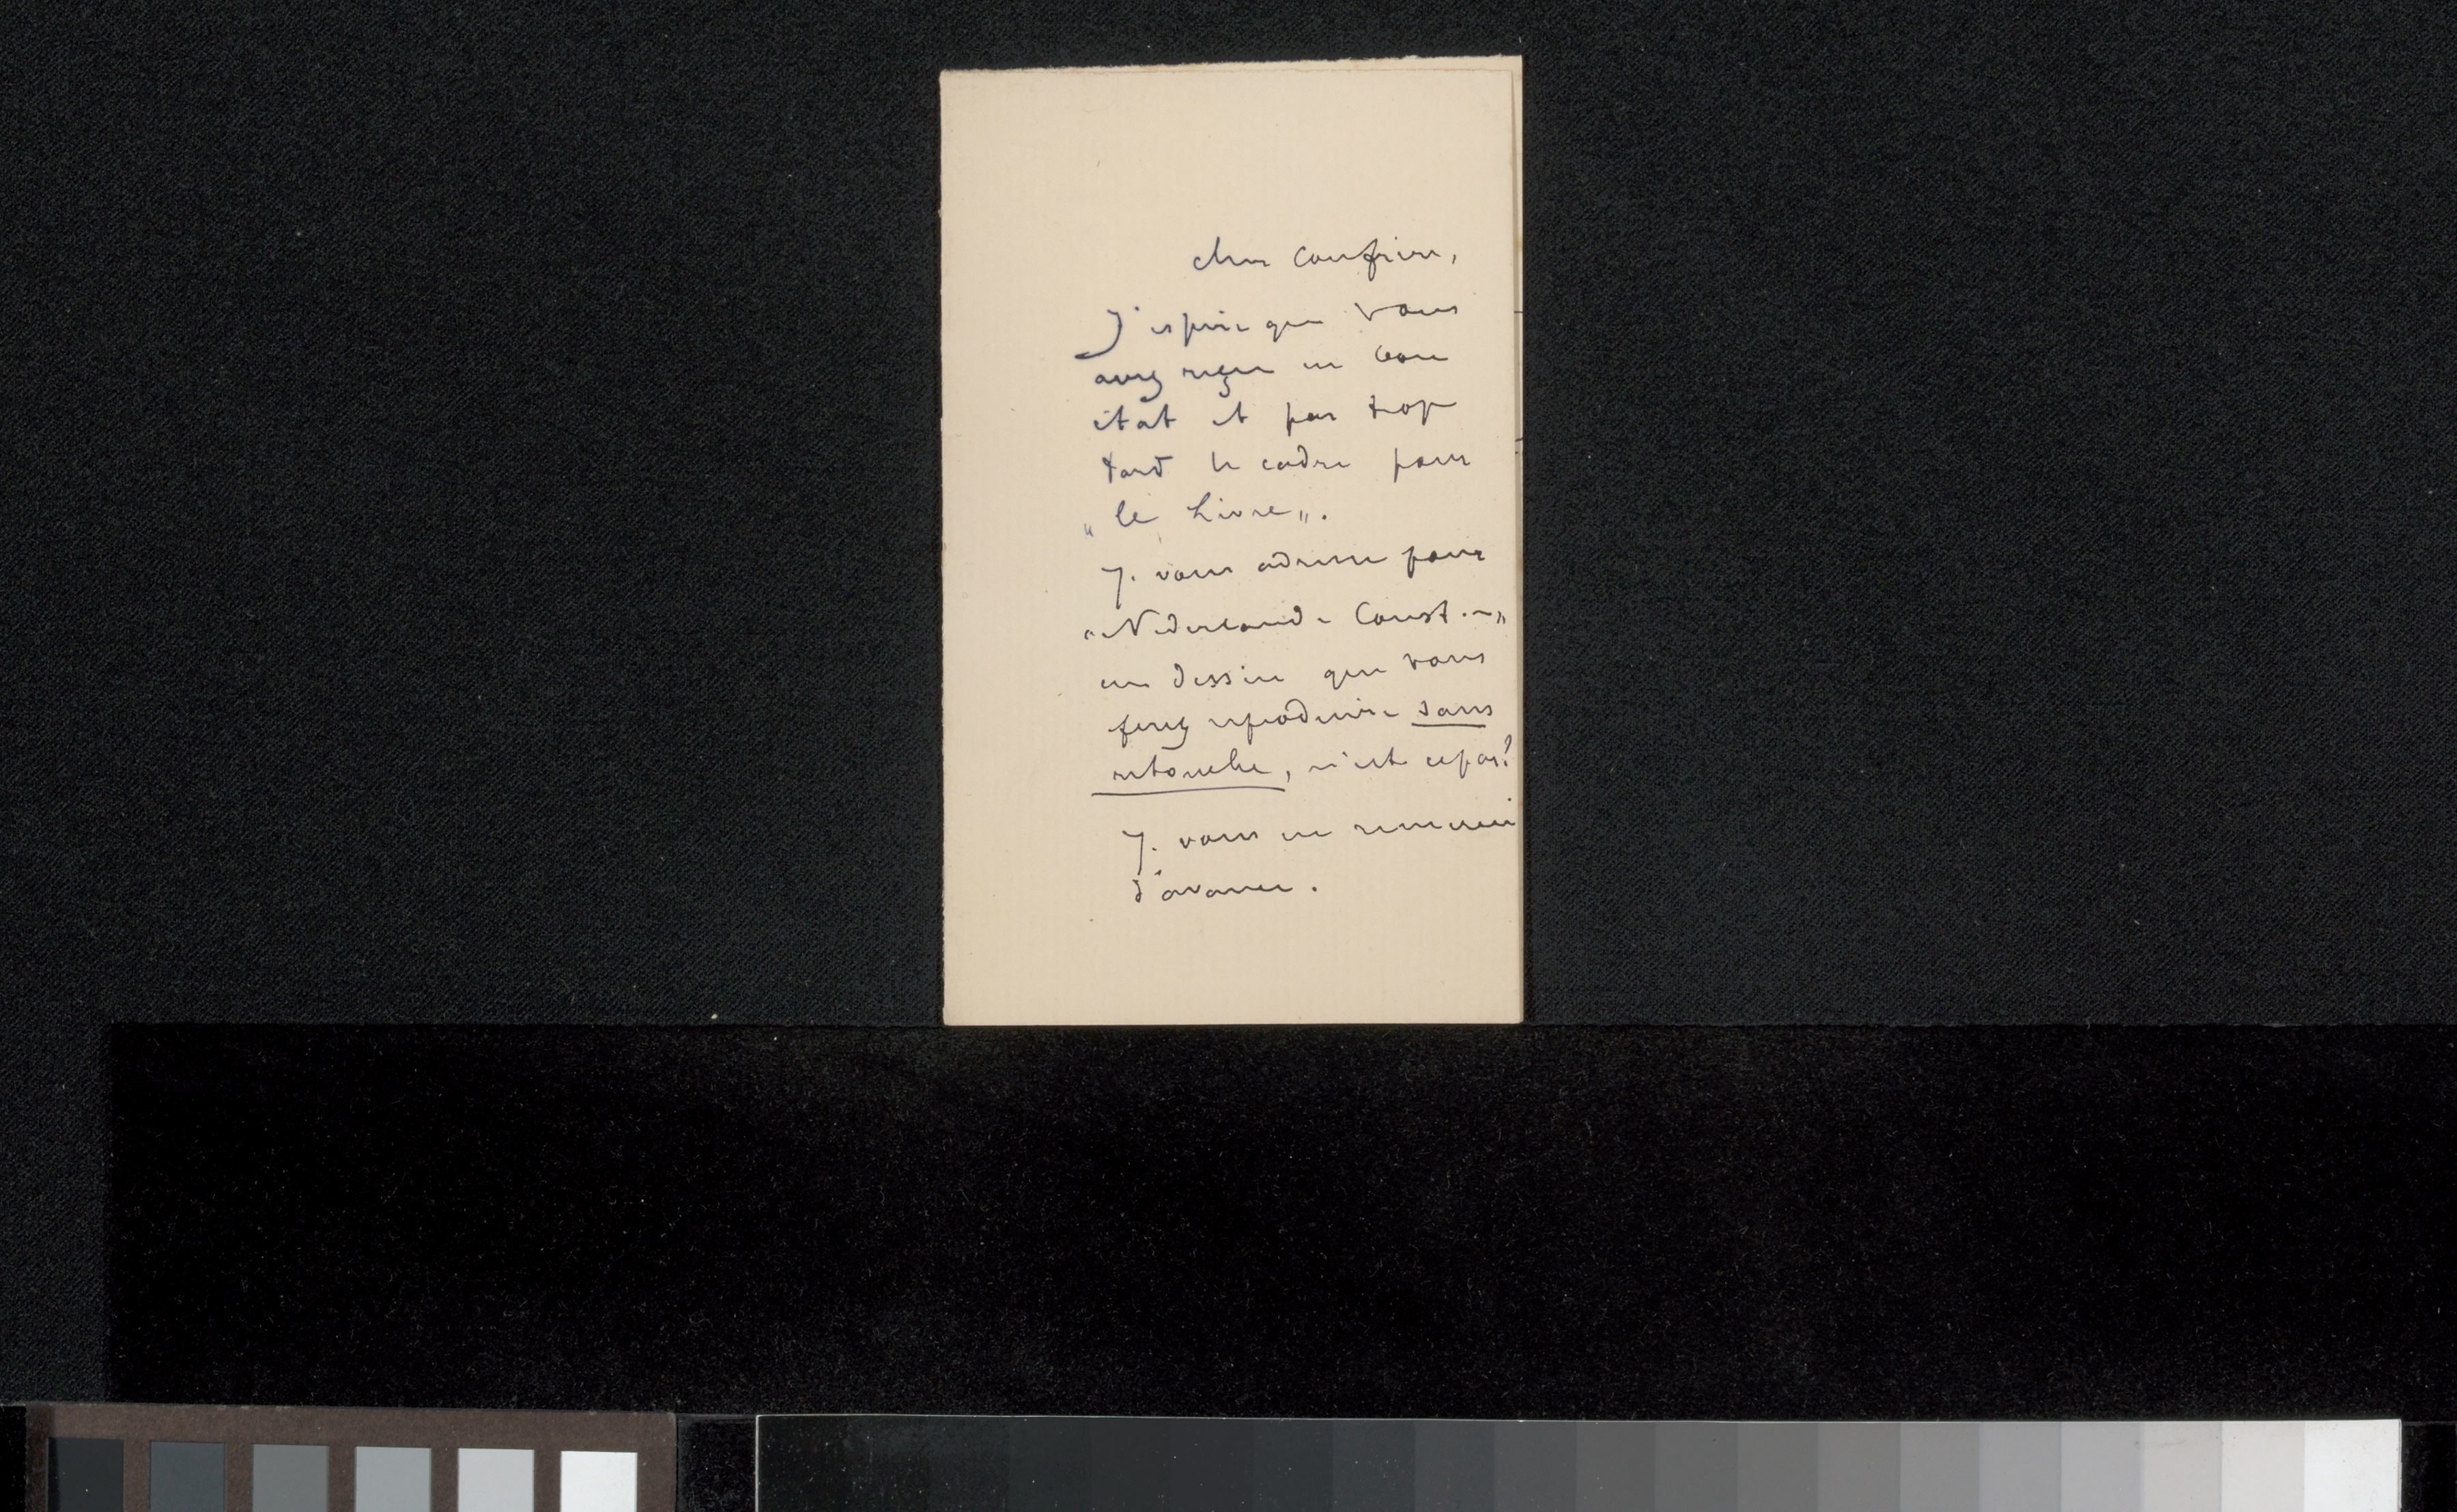 cher confrère,
J'espère que vous
avez reçu en bon
état et pas trop
tard le cadre pour
„le Livre„.
Je vous adresse pour
"Nederlande Const.„
un dessin que vous
ferez reproduire sans
retouche, n'est ce pas?
Je vous en remercie
d'avance.